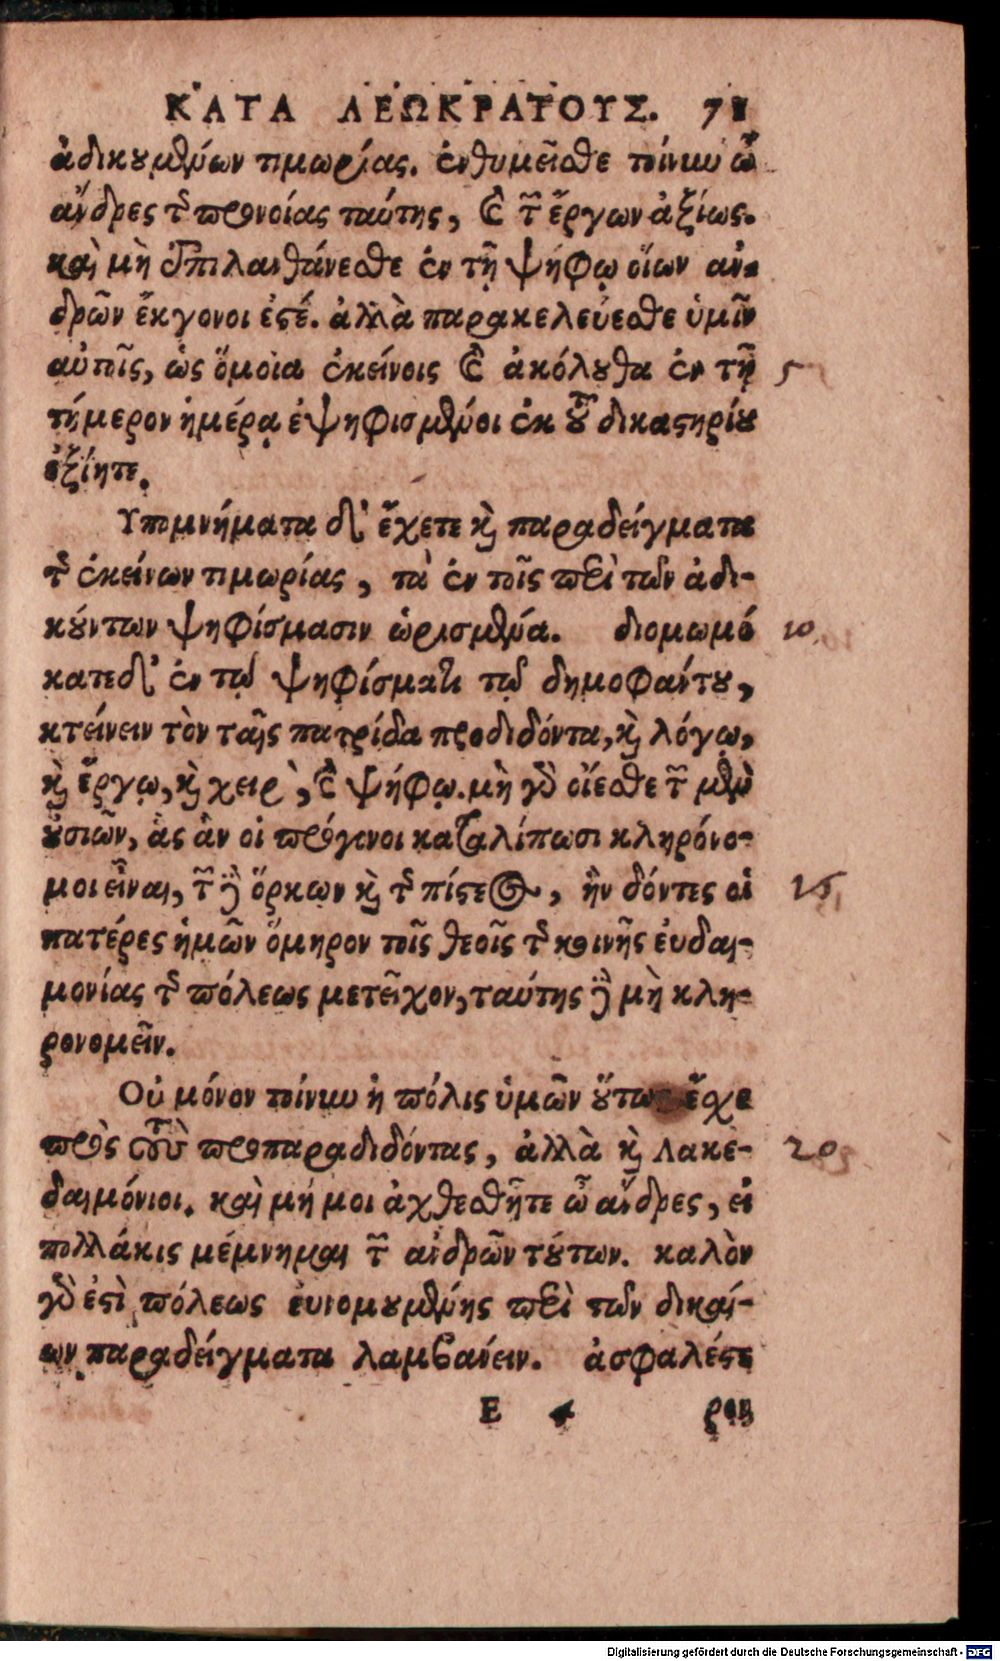 ΚΑΤΑ ΛΕΩΚΡΑΤΟΥΣ. 71
ἀδικουμένων τιμωρίας. ἐνθυμεῖσθε τοίνυν ὦ
ἄνδρες τῆς προνοίας ταύτης, καὶ τῶν ἔργων ἀξίως.
καὶ μὴ ἐπιλανθάνεσθε ἐν τῇ ψήφῳ οἵων ἀν-
δρῶν ἔκγονοι ἐστέ. ἀλλὰ παρακελεύεσθε ὑμῖν
αὐτοῖς, ὡς ὅμοια ἐκείνοις καὶ ἀκόλουθα ἐν τῇ 5
τήμερον ἡμέρᾳ ἐψηφισμένοι ἐκ τοῦ δικαστηρίου
ἐξίητε.
Υπομνήματα δ' ἔχετε καὶ παραδείγματα
τῆς ἐκείνων τιμωρίας, τὰ ἐν τοῖς περὶ τῶν ἀδι-
κούντων ψηφίσμασιν ὡρισμένα. διομωμό 10
κατε δ' ἐν τῷ ψηφίσματι τῷ δημοφάντου,
κτείνειν τὸν τὴν πατρίδα προδιδόντα, καὶ λόγῳ,
καὶ ἔργῳ, καὶ χειρὶ, καὶ ψήφῳ. μὴ γὰρ οἴεσθε τῶν μὲν
οὐσιῶν, ἃς ἂν οἱ πρόγονοι καταλίπωσι κληρονό-
μοι εἶναι, τῶν δὲ ὅρκων καὶ τῆς πίστεως, ἣν δόντες οἱ 15
πατέρες ἡμῶν ὅμηρον τοῖς θεοῖς τῆς κοινῆς εὐδαι-
μονίας τῆς πόλεως μετεῖχον, ταύτης δὲ μὴ κλη-
ρονομεῖν.
Οὐ μόνον τοίνυν ἡ πόλις ὑμῶν οὕτως ἔσχε
πρὸς τοὺς προπαραδιδόντας, ἀλλὰ καὶ λακε- 20
δαιμόνιοι. καὶ μή μοι ἀχθεσθῆτε ὦ ἄνδρες, εἰ
πολλάκις μέμνημαι τῶν ἀνδρῶν τούτων. καλὸν
γὰρ ἐστὶ πόλεως εὐνομουμένης περὶ τῶν δικαί-
ων παραδείγματα λαμβάνειν. ἀσφαλέστε
E ρον
Digitalisierung gefördert durch die Deutsche Forschungsgemeinschaft - DFG